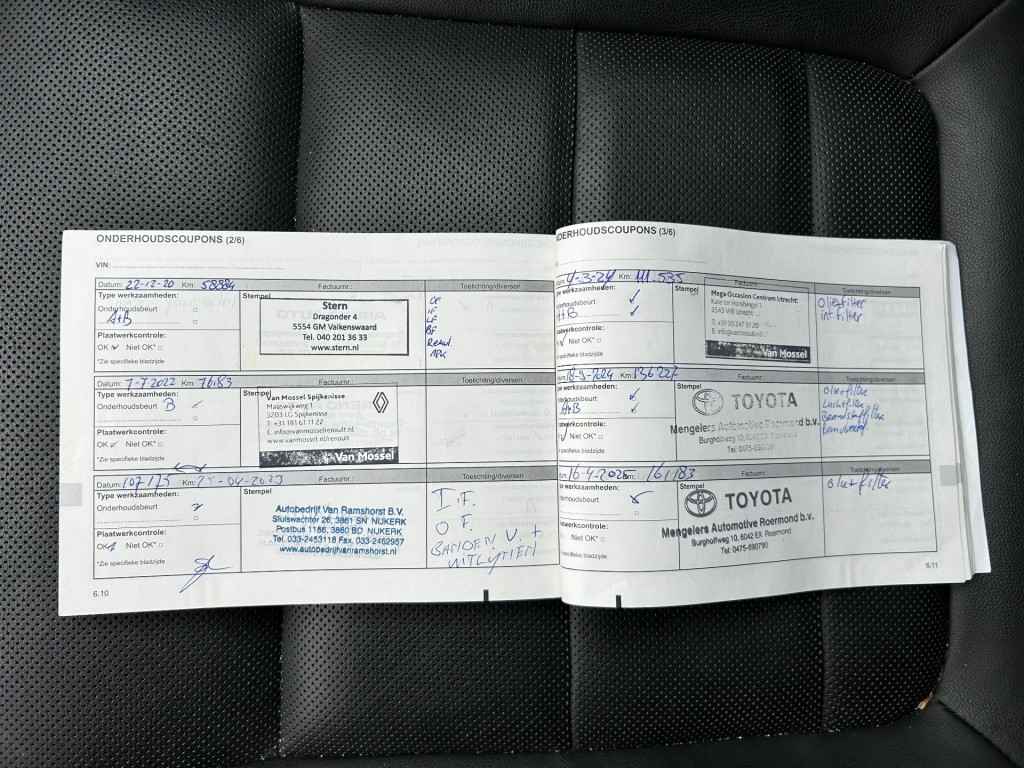 ONDERHOUDSCOUPONS (2/6)
VIN:
Datum: 22-12-20 Km: 58884 Factuurnr.: Toelichting/diversen
Type werkzaamheden: Stempel
Onderhoudsbeurt
A+B
Plaatwerkcontrole:
OK Niet OK*
*Zie specifieke bladzijde
Stern
Dragonder 4
5554 GM Valkenswaard
Tel. 040 201 36 33
www.stern.nl
IF
LF
BF
Datum: 7-7-2022 Km: 7683 Factuurnr.: Toelichting/diversen
Type werkzaamheden: Stempel
Onderhoudsbeurt B
Plaatwerkcontrole:
OK Niet OK*
*Zie specifieke bladzijde
Van Mossel Spijkenisse
Maaswijkweg 1
3203 LG Spijkenisse
T. +31 181 61 11 22
E. info@vanmosselrenault.nl
www.vanmossel.nl/renault
Van Mossel
Datum: 107175 Km: Factuurnr.: Toelichting/diversen
Type werkzaamheden: Stempel
Onderhoudsbeurt
Plaatwerkcontrole:
OK Niet OK*
*Zie specifieke bladzijde
Autobedrijf Van Ramshorst B.V.
Sluiswachter 26, 3861 SN NIJKERK
Postbus 1186, 3860 BD NIJKERK
Tel. 033-2453118 Fax. 033-2462957
www.autobedrijfvanramshorst.nl
I.F.
O F.
BANDEN V. +
UITLIJNEN
6.10
ONDERHOUDSCOUPONS (3/6)
4-3-24 Km: 111.535 Factuurnr.: Toelichting/diversen
type werkzaamheden: Stempel
houdsbeurt
A+B
Plaatwerkcontrole:
Niet OK*
specifieke bladzijde
Mega Occasion Centrum Utrecht
3543 Utrecht
Van Mossel
Oliefilter
int. filter
18-9-2024 Km: 136227 Factuurnr.: Toelichting/diversen
type werkzaamheden: Stempel
houdsbeurt
A+B
plaatwerkcontrole:
Niet OK*
specifieke bladzijde
TOYOTA
Mengelers Automotive Roermond b.v.
Burgholfweg 10, 6042 EX Roermond
Tel. 0475-590790
Oliefilter
Luchtfilter
Brandstoffilter
16-4-2025 Km: 161183 Factuurnr.: Toelichting/diversen
type werkzaamheden: Stempel
houdsbeurt
Plaatwerkcontrole:
Niet OK*
specifieke bladzijde
TOYOTA
Mengelers Automotive Roermond b.v.
Burgholfweg 10, 6042 EX Roermond
Tel. 0475-590790
Oliefilter
6.11